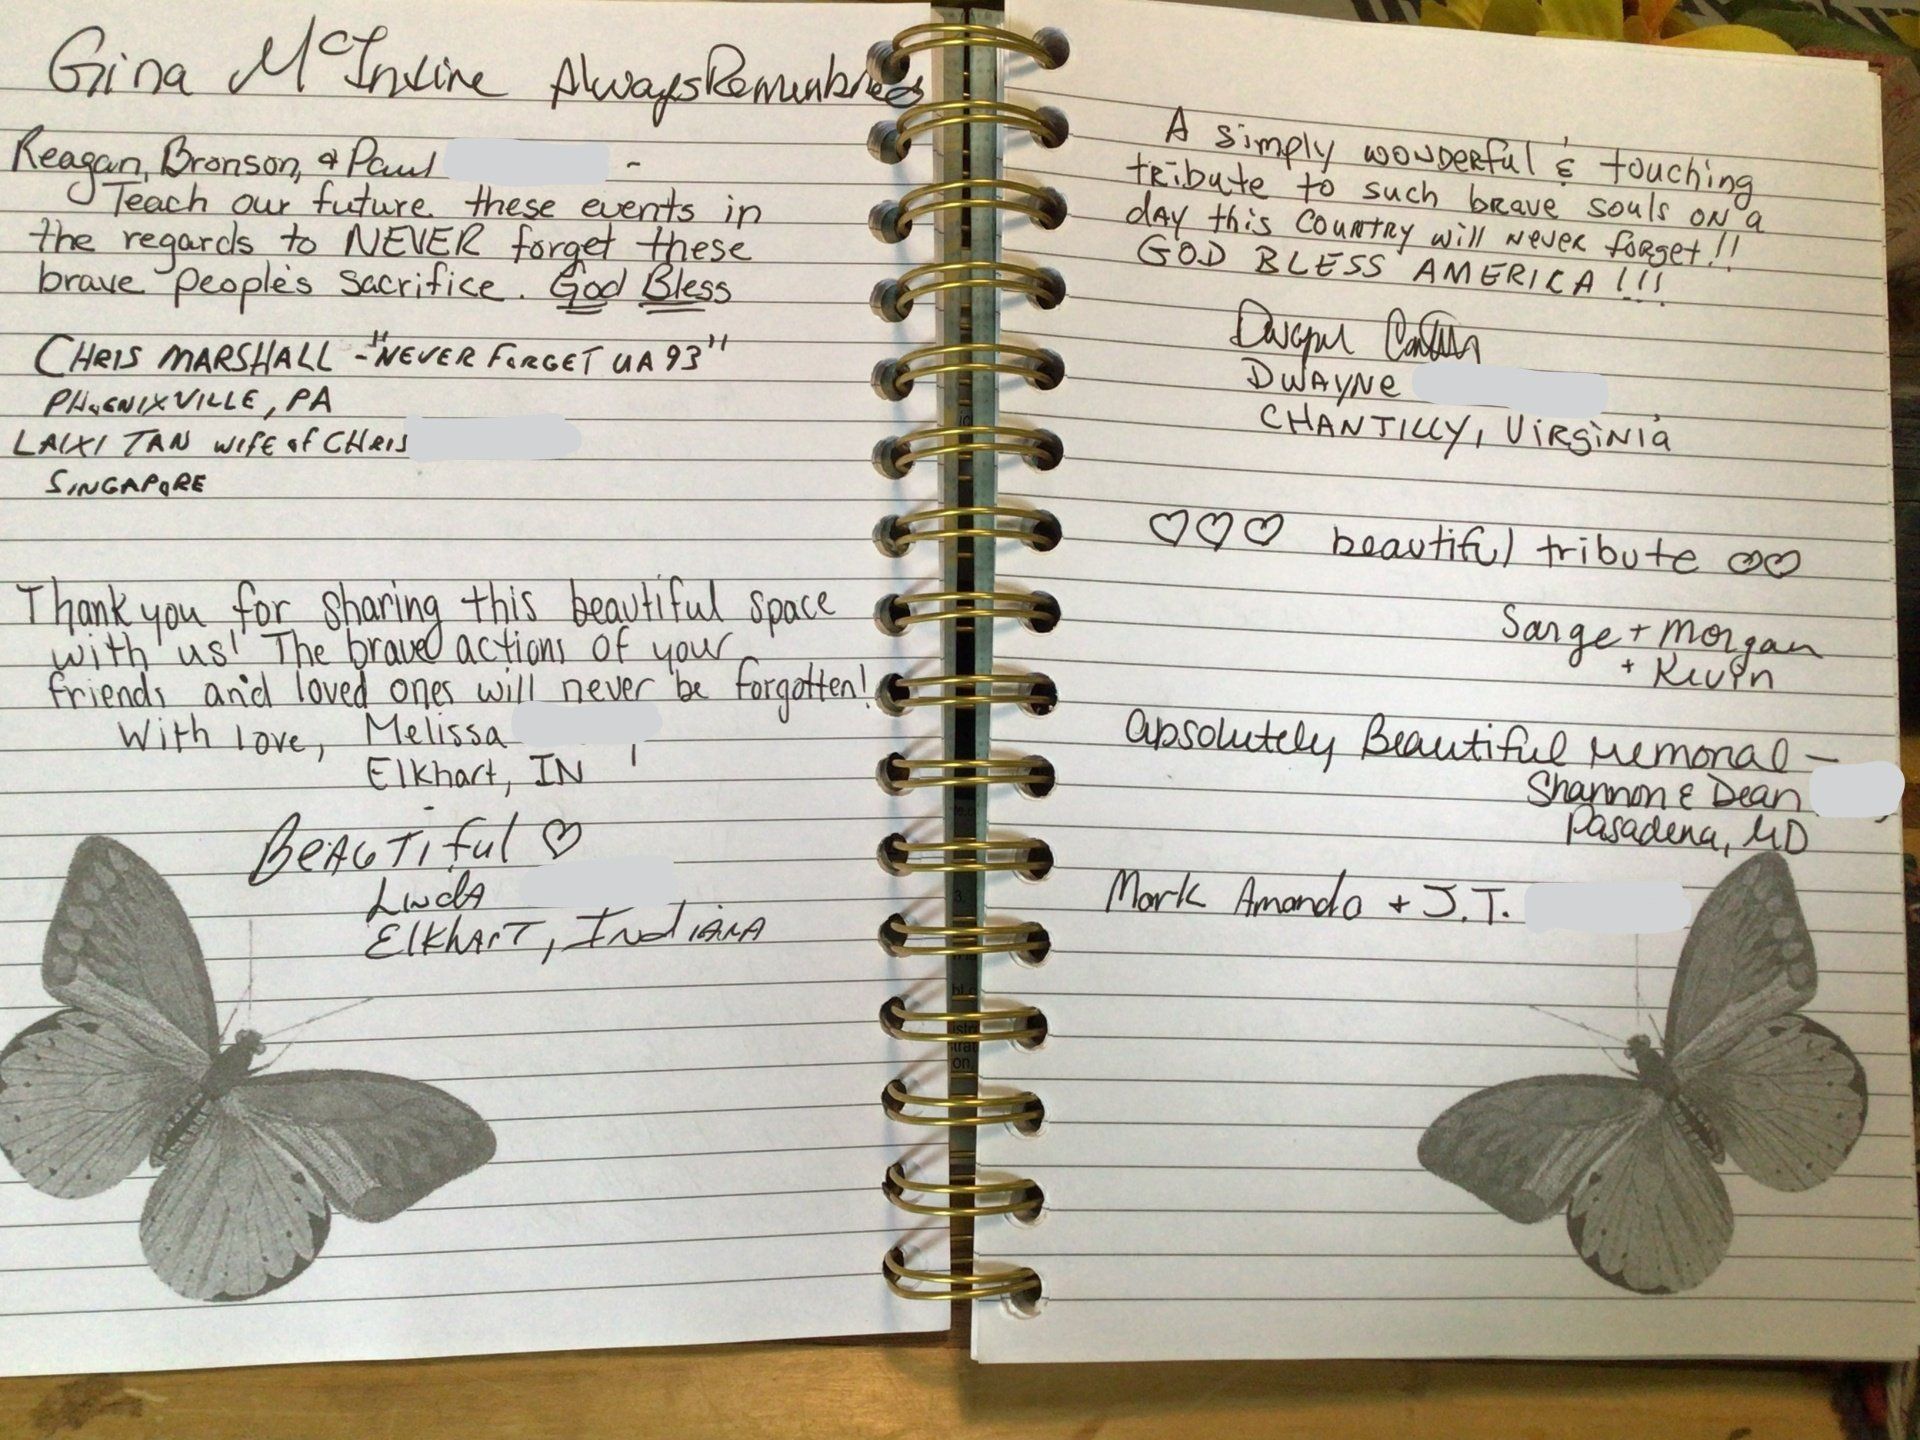 Gina McIntire Always Remembered
Reagan, Bronson, & Paul -
Teach our future these events in
the regards to NEVER forget these
brave people's sacrifice. God Bless
CHRIS MARSHALL - "NEVER FORGET UA 93"
PHOENIXVILLE, PA
LAIXI TAN WIFE of CHRIS
SINGAPORE
Thank you for sharing this beautiful space
with us! The brave actions of your
friends and loved ones will never be forgotten!
With love, Melissa
Elkhart, IN
BEAUTiful ♡
LindA
ElkhArT, IndiANA
A simply WONDERful & touching
tribute to such brave souls on a
day this Country will never forget!!
GOD BLESS AMERICA!!!
DWAYNE
CHANTILLY, VIRGINIA
♡♡♡ beautiful tribute ♡♡
Sarge + Morgan
+ Kevin
Absolutely Beautiful Memorial -
Shannon & Dean
Pasadena, MD
Mark Amanda + J.T.